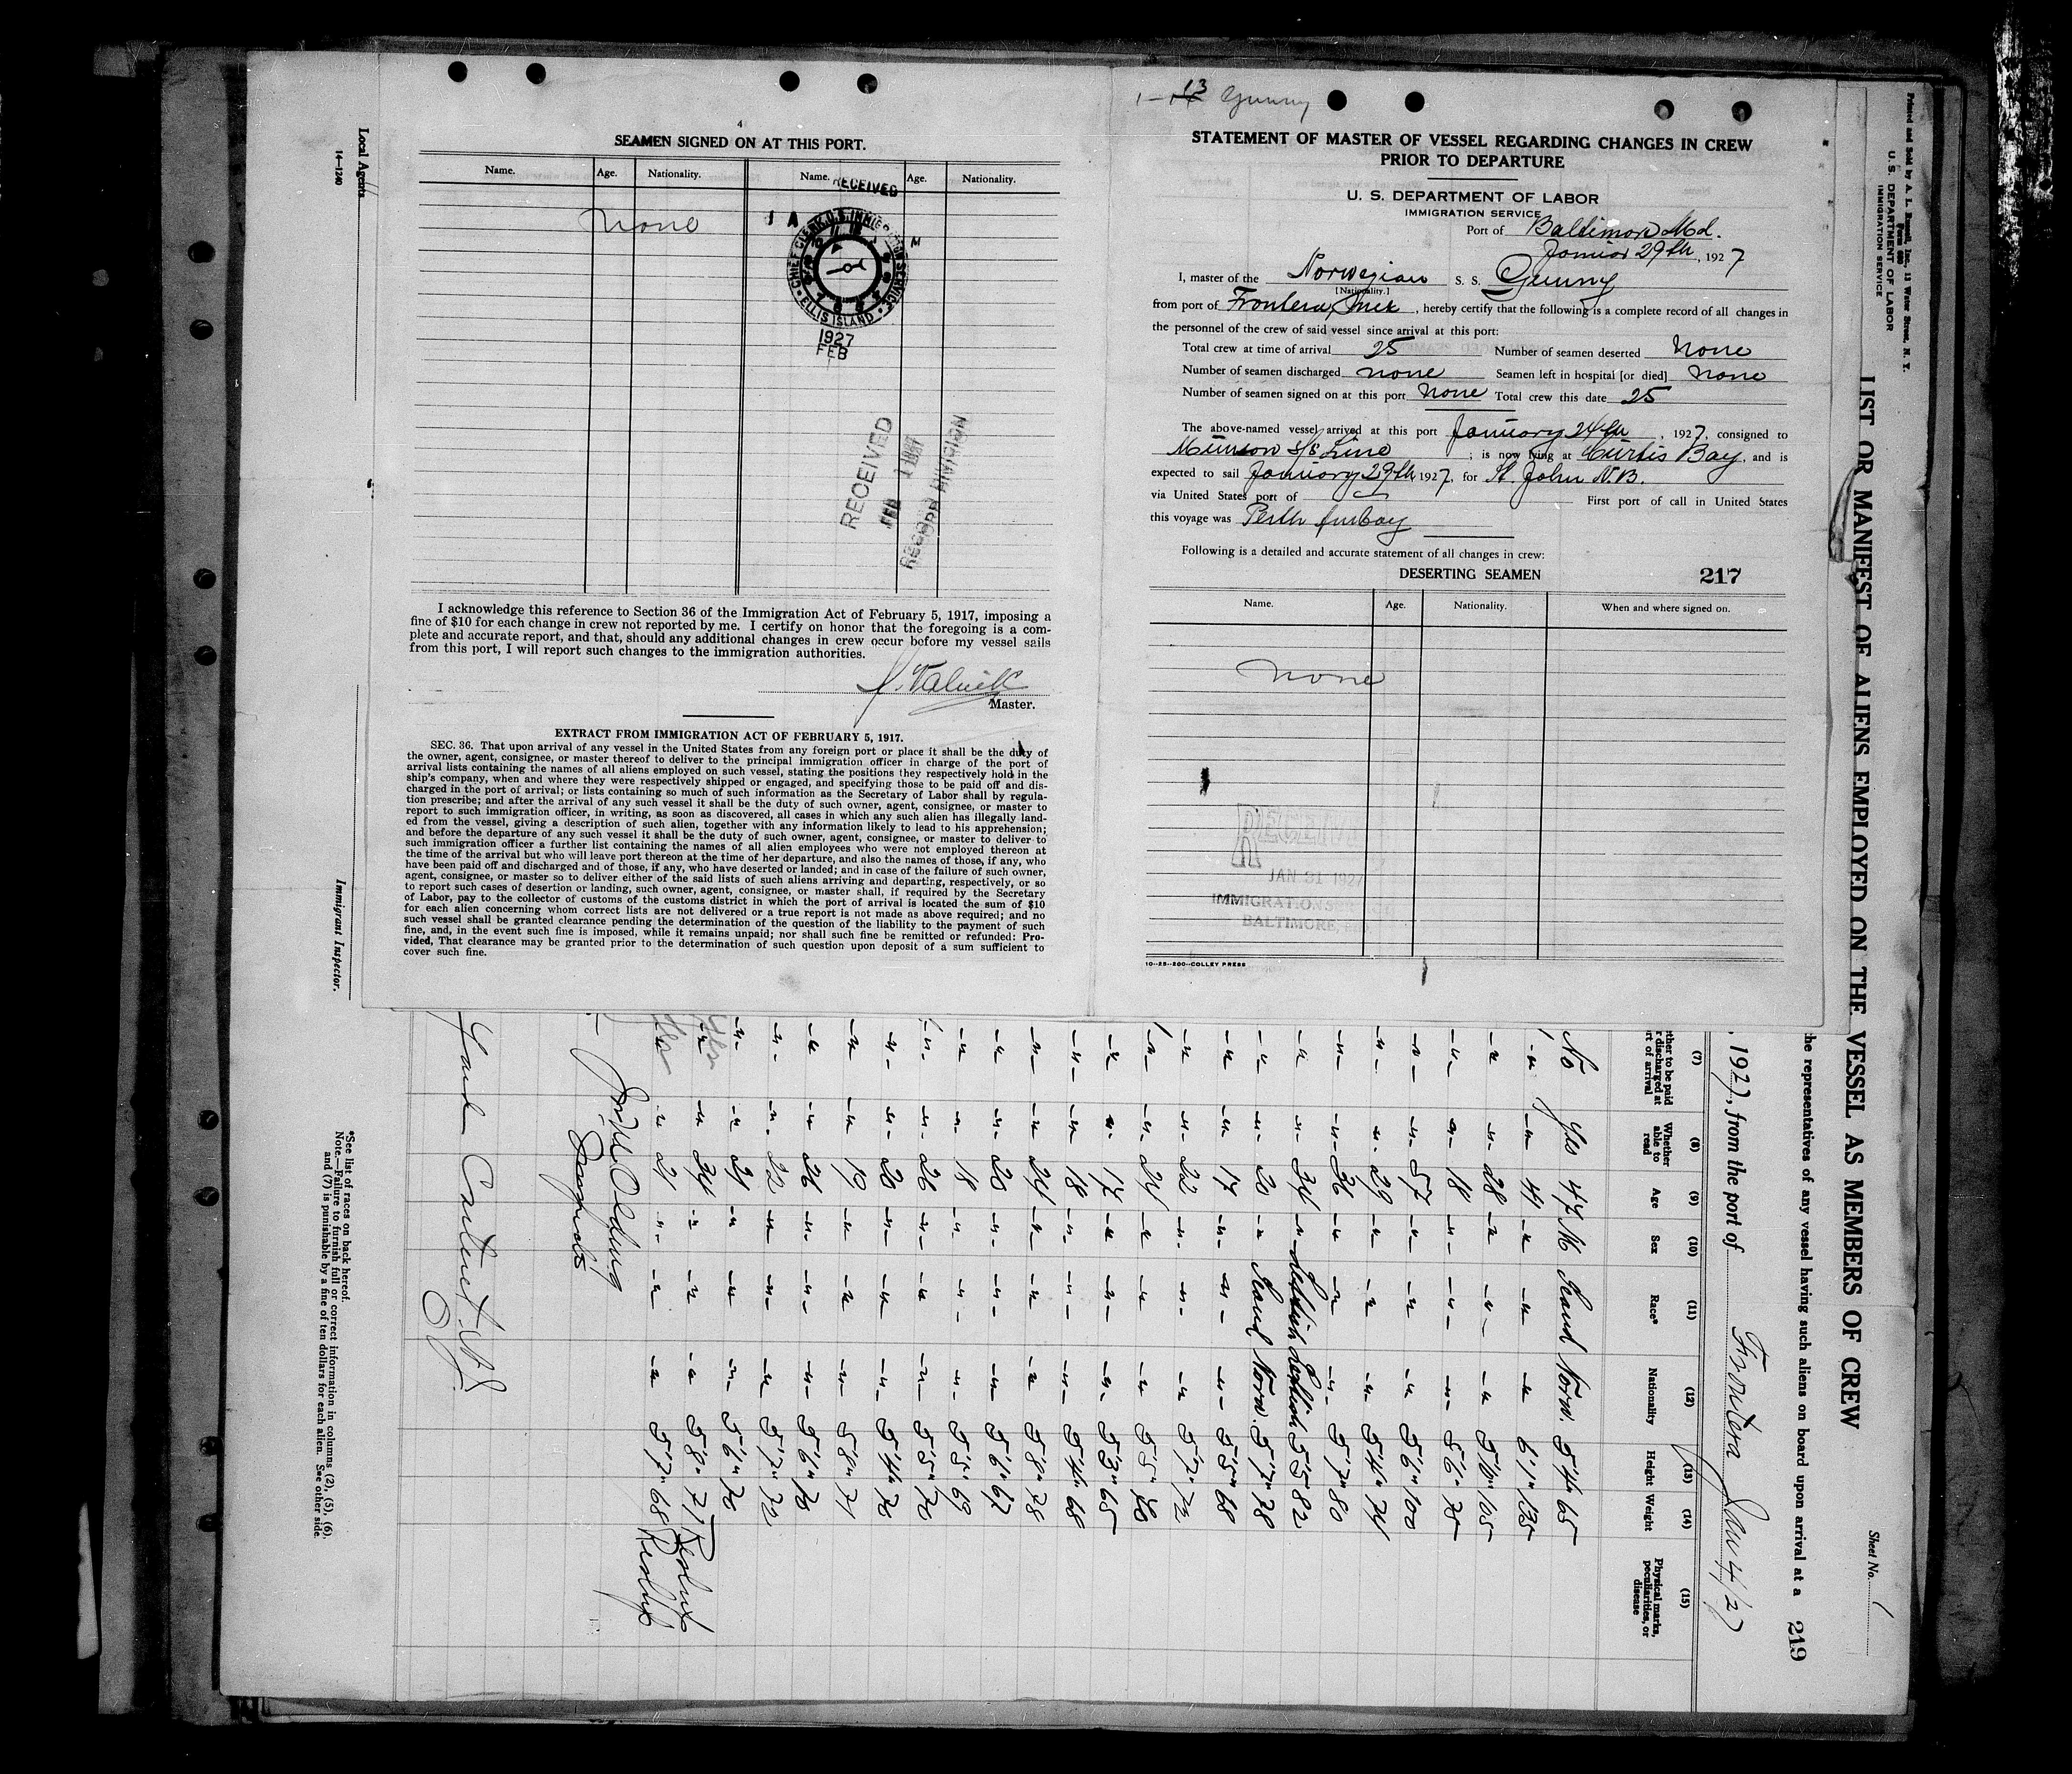 4
SEAMEN SIGNED ON AT THIS PORT.
Name. Age. Nationality. Name. Age. Nationality.
None
RECEIVED
CHIEF CLERK U.S. IMMIGRATION SERVICE
ELLIS ISLAND
1927
FEB
RECEIVED
FEB 1 1927
RECORD DIVISION
I acknowledge this reference to Section 36 of the Immigration Act of February 5, 1917, imposing a
fine of $10 for each change in crew not reported by me. I certify on honor that the foregoing is a com-
plete and accurate report, and that, should any additional changes in crew occur before my vessel sails
from this port, I will report such changes to the immigration authorities.
Master.
EXTRACT FROM IMMIGRATION ACT OF FEBRUARY 5, 1917.
SEC. 36. That upon arrival of any vessel in the United States from any foreign port or place it shall be the duty of
the owner, agent, consignee, or master thereof to deliver to the principal immigration officer in charge of the port of
arrival lists containing the names of all aliens employed on such vessel, stating the positions they respectively hold in the
ship's company, when and where they were respectively shipped or engaged, and specifying those to be paid off and dis-
charged in the port of arrival; or lists containing so much of such information as the Secretary of Labor shall by regula-
tion prescribe; and after the arrival of any such vessel it shall be the duty of such owner, agent, consignee, or master to
report to such immigration officer, in writing, as soon as discovered, all cases in which any such alien has illegally land-
ed from the vessel, giving a description of such alien, together with any information likely to lead to his apprehension;
and before the departure of any such vessel it shall be the duty of such owner, agent, consignee, or master to deliver to
such immigration officer a further list containing the names of all alien employees who were not employed thereon at
the time of the arrival but who will leave port thereon at the time of her departure, and also the names of those, if any, who
have been paid off and discharged and of those, if any, who have deserted or landed; and in case of the failure of such owner,
agent, consignee, or master so to deliver either of the said lists of such aliens arriving and departing, respectively, or so
to report such cases of desertion or landing, such owner, agent, consignee, or master shall, if required by the Secretary
of Labor, pay to the collector of customs of the customs district in which the port of arrival is located the sum of $10
for each alien concerning whom correct lists are not delivered or a true report is not made as above required; and no
such vessel shall be granted clearance pending the determination of the question of the liability to the payment of such
fine, and, in the event such fine is imposed, while it remains unpaid; nor shall such fine be remitted or refunded: Pro-
vided, That clearance may be granted prior to the determination of such question upon deposit of a sum sufficient to
cover such fine.
13 Gunny
STATEMENT OF MASTER OF VESSEL REGARDING CHANGES IN CREW
PRIOR TO DEPARTURE
U. S. DEPARTMENT OF LABOR
IMMIGRATION SERVICE
Port of Baltimore Md.
29th, 1927
I, master of the Norwegian S. S. Gunny
[Nationality.]
from port of Frontera, Mex, hereby certify that the following is a complete record of all changes in
the personnel of the crew of said vessel since arrival at this port:
Total crew at time of arrival 25 Number of seamen deserted None
Number of seamen discharged none Seamen left in hospital [or died] none
Number of seamen signed on at this port None Total crew this date 25
The above-named vessel arrived at this port January 24th, 1927, consigned to
Munson S/S Line; is now lying at Curtis Bay, and is
expected to sail January 29th, 1927, for St. John N.B.
via United States port of First port of call in United States
this voyage was Perth Amboy
Following is a detailed and accurate statement of all changes in crew:
DESERTING SEAMEN 217
Name. Age. Nationality. When and where signed on.
None
RECEIVED
JAN 31 1927
IMMIGRATION SERVICE
BALTIMORE, MD.
10--25--200--COLLEY PRESS
Printed and Sold by A. L. Russell, Inc., 13 Water Street, N. Y.
Form 680
U. S. DEPARTMENT OF LABOR
IMMIGRATION SERVICE
Sheet No. 1
LIST OR MANIFEST OF ALIENS EMPLOYED ON THE VESSEL AS MEMBERS OF CREW
he representatives of any vessel having such aliens on board upon arrival at a 219
, 1927, from the port of Frontera Jan 4/27
(7) (8) (9) (10) (11) (12) (13) (14) (15)
ther to be paid r discharged at rt of arrival Whether able to read Age Sex Race* Nationality Height Weight Physical marks, peculiarities, or disease
No Yes 47 M Scand Norw. 5'4" 65
-"- -"- 41 -"- -"- -"- 6'1" 135
-"- -"- 28 -"- -"- -"- 5'10" 105
-"- -"- 18 -"- -"- -"- 5'6" 75
-"- -"- 57 -"- -"- -"- 5'6" 100
-"- -"- 29 -"- -"- -"- 5'4" 74
-"- -"- 36 -"- -"- -"- 5'7" 80
-"- -"- 34 -"- 5'5" 82
-"- -"- 20 -"- Scand Norw. 5'7" 78
-"- -"- 17 -"- -"- -"- 5'5" 68
-"- -"- 22 -"- -"- -"- 5'7" 72
-"- -"- 24 -"- -"- -"- 5'5"
-"- -"- 17 -"- -"- -"- 5'3" 65
-"- -"- 18 -"- -"- -"- 5'4" 68
-"- -"- 24 -"- -"- -"- 5'8" 78
-"- -"- 20 -"- -"- -"- 5'6" 67
-"- -"- 18 -"- -"- -"- 5'5" 69
-"- -"- 26 -"- -"- -"- 5'5" 70
-"- -"- 20 -"- -"- -"- 5'4" 70
-"- -"- 19 -"- -"- -"- 5'8" 71
-"- -"- 26 -"- -"- -"- 5'6" 75
-"- -"- 22 -"- -"- -"- 5'7" 72
-"- -"- 21 -"- -"- -"- 5'6" 70
-"- -"- 24 -"- -"- -"- 5'8" 71
-"- -"- 21 -"- -"- -"- 5'7" 68
*See list of races on back hereof.
Note.—Failure to furnish full or correct information in columns (2), (5), (6),
and (7) is punishable by a fine of ten dollars for each alien. See other side.
Immigrant Inspector.
Local Agents
14—1240